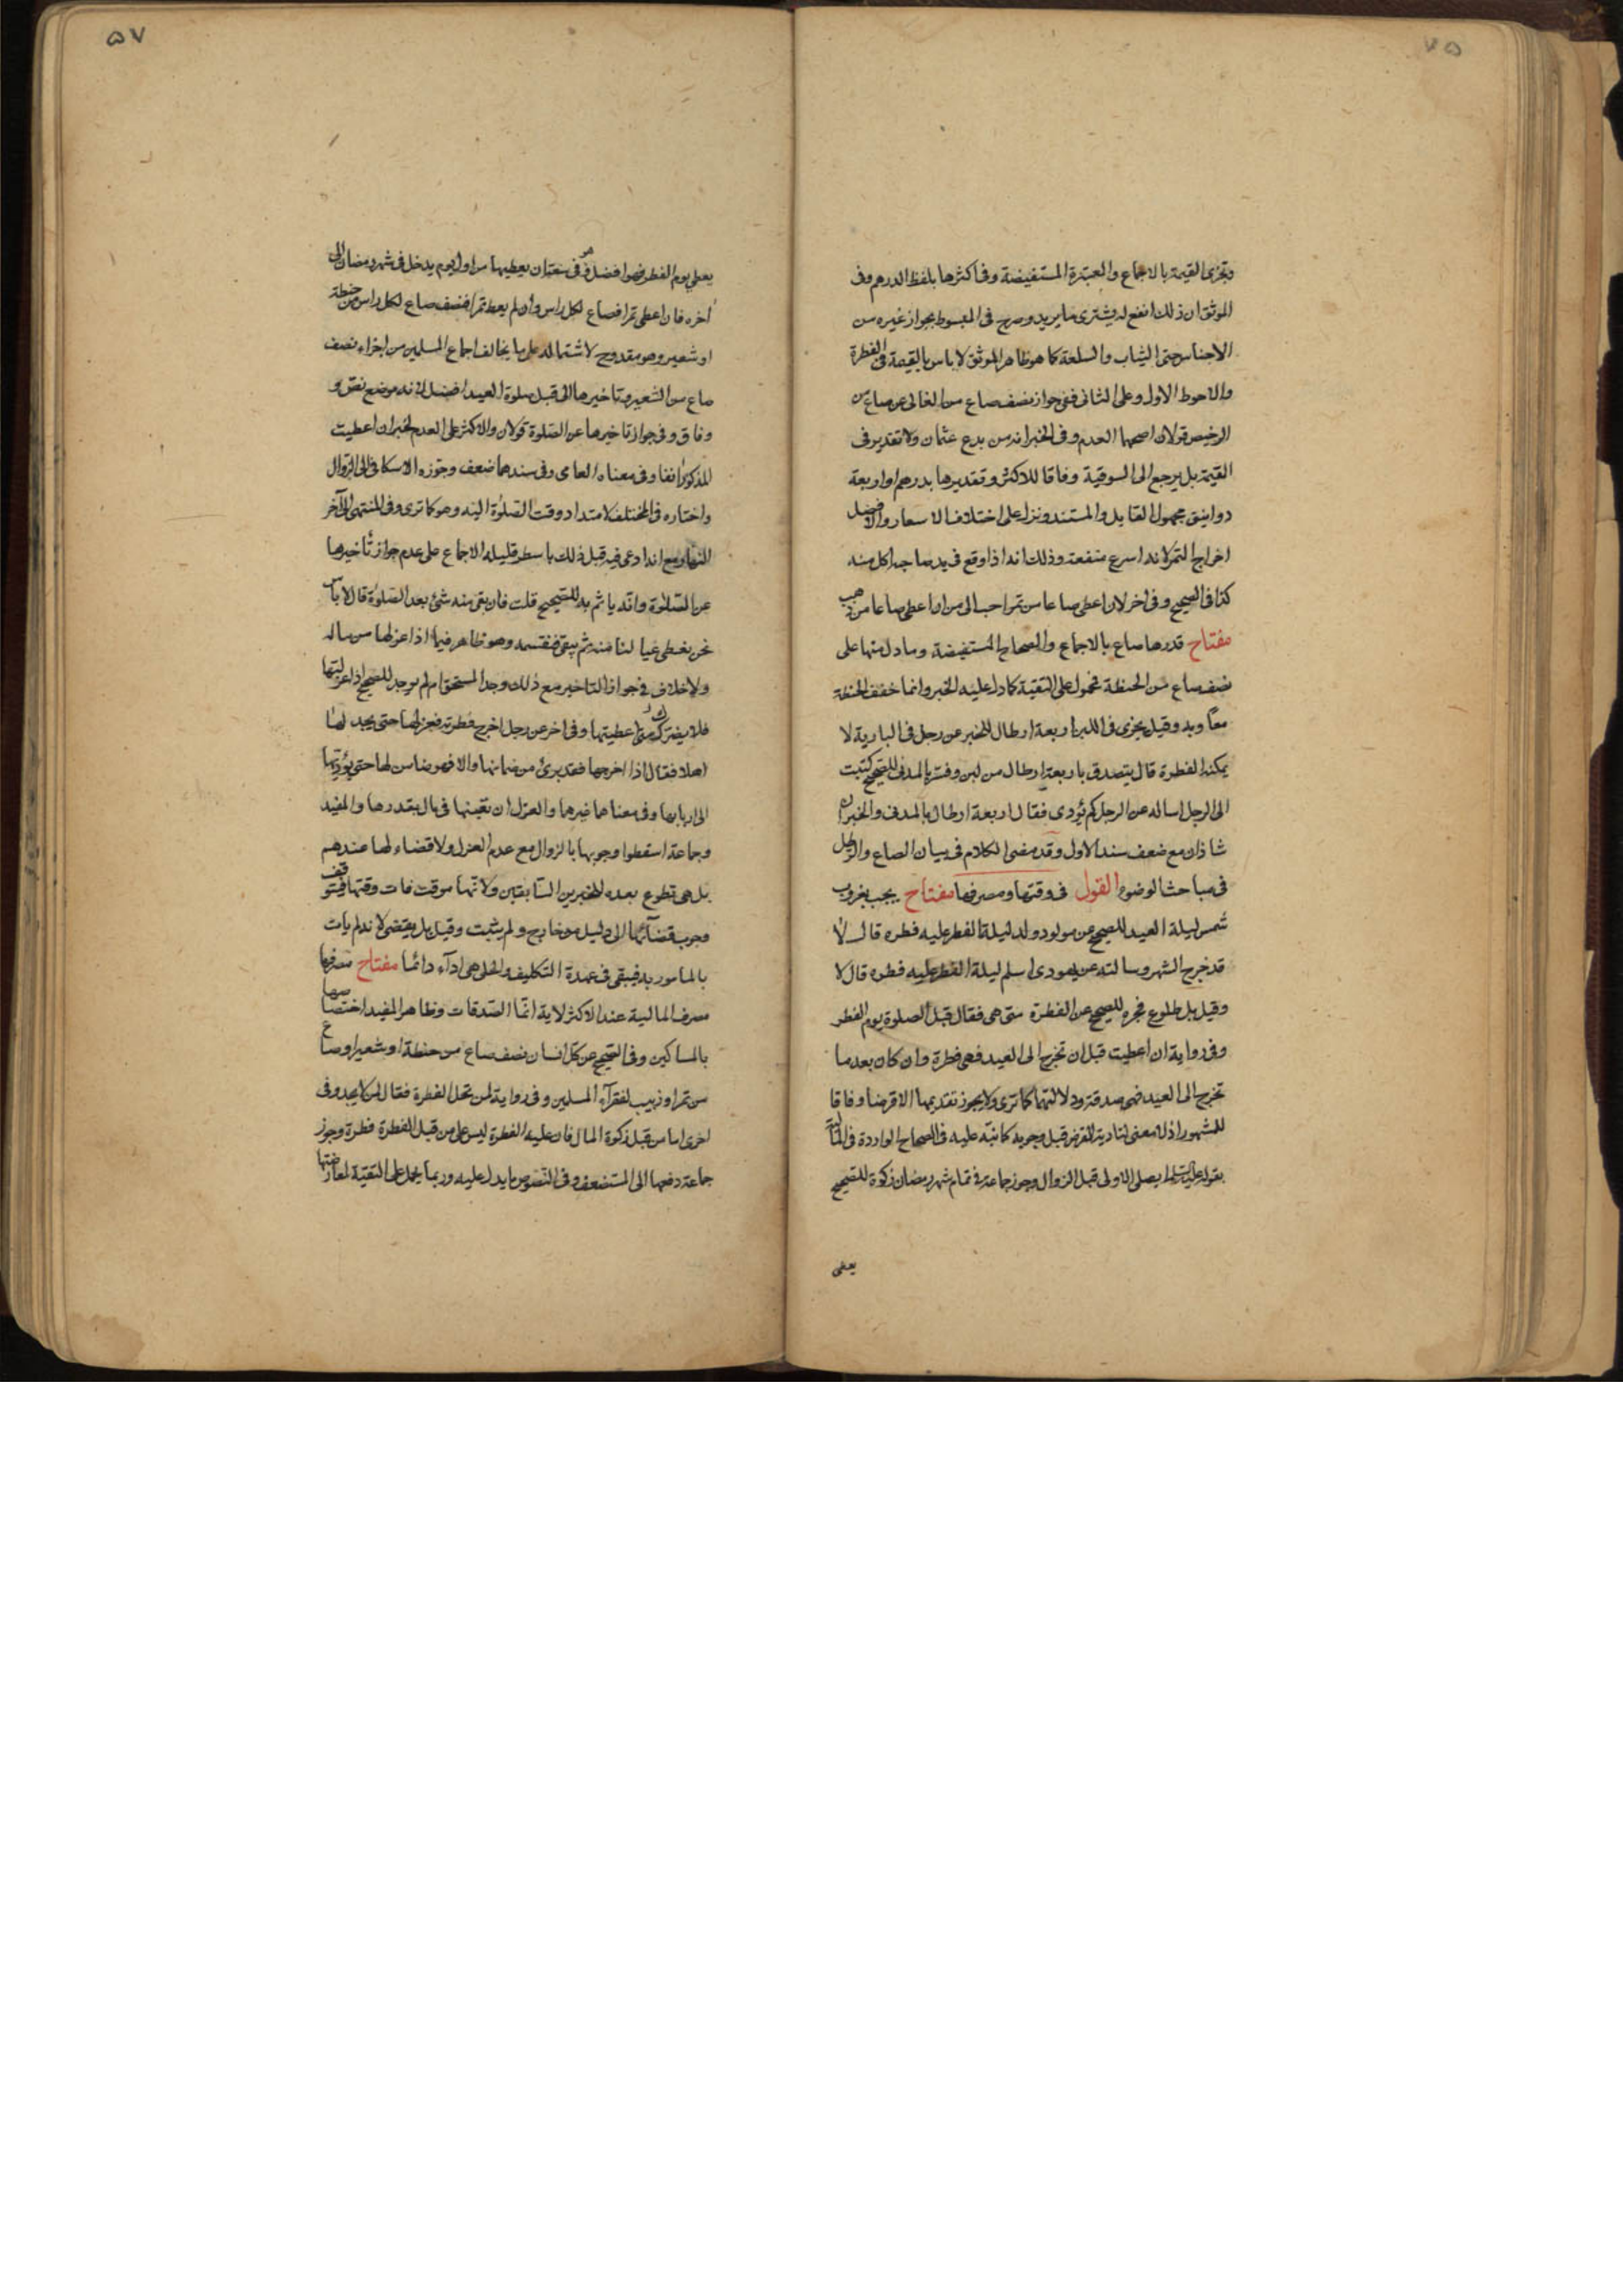 وتجزی القیمة بالاجماع والمعتبرة المستفیضة وفی اکثرها بلفظ الدرهم وفی
الموثق ان ذلک انفع له یشتری ما یرید وصرح فی المبسوط بجواز غیره من
الاجناس حتی الثیاب والسلعة کما هو ظاهر الموثق لا باس بالقیمة فی الفطرة
والاحوط الاول وعلی الثانی ففی جواز نصف صاع من الغالی عن صاع من
الرخیص قولان اصحهما العدم وفی الخبر انه من بدع عثمان ولا تقدیر فی
القیمة بل یرجع الی السوقیة وفاقا للاکثر وتقدیرها بدرهم او اربعة
دوانیق مجهول القایل والمستند ونزل علی اختلاف الاسعار والافضل
اخراج التمر لانه اسرع منفعة وذلک انه اذا وقع فی ید صاحبه اکل منه
کذا فی الصحیح وفی اخر لان اعطی صاعا من تمر احب الی من ان اعطی صاعا من ذهب
مفتاح قدرها صاع بالاجماع والصحاح المستفیضة وما دل منها علی
نصف صاع من الحنطة محمول علی التقیة کما دل علیه الخبر وانما خفف الحنطة
معاویه وقیل یجزی فی اللبن اربعة ارطال للخبر عن رجل فی البادیة لا
یمکنه الفطرة قال یتصدق باربعة ارطال من لبن وفسر بالمدنی للصحیح کتبت
الی الرجل اساله عن الرجل کم یؤدی فقال اربعة ارطال بالمدنی والخبران
شاذان مع ضعف سند الاول وقد مضی الکلام فی بیان الصاع والرطل
فی مباحث الوضوء القول فی وقتها ومصرفها مفتاح یجب بغروب
شمس لیلة العید للصحیح عن مولود ولد لیلة الفطر علیه فطره قال لا
قد خرج الشهر وسالته عن یهودی اسلم لیلة الفطر علیه فطره قال لا
وقیل بل طلوع فجره للصحیح عن الفطرة متی هی فقال قبل الصلوة یوم الفطر
وفی روایة ان اعطیت قبل ان تخرج الی العید فهی فطرة وان کان بعد ما
تخرج الی العید فهی صدقة ودلالتهما کما تری ولا یجوز تقدیمها الا قرضا وفاقا
للمشهور اذ لا معنی لتادیة الفرض قبل وجوبه کما نبه علیه فی الصحاح الواردة فی المالیة
بقوله علیه السلم ایصلی الاولی قبل الزوال وجوز جماعة فی تمام شهر رمضان زکوة للصحیح
یعطی
یعطی یوم الفطر فهوا فضل وهو فی سعة ان یعطیها من اول یوم یدخل فی شهر رمضان الی
اخره فان اعطی تمرا فصاع لکل راس وان لم یعط تمرا فنصف صاع لکل راس من حنطة
او شعیر وهو مقدوح لاشتماله علی ما یخالف اجماع المسلمین من اجزاء نصف
صاع من الشعیر وتاخیرها الی قبل صلوة العید افضل لانه موضع نص و
وفاق وفی جواز تاخیرها عن الصلوة قولان والاکثر علی العدم لخبر ان اعطیت
المذکور انفا وفی معناه العامی وفی سندهما ضعف وجوزه الاسکافی الی الزوال
واختاره فی المختلف لامتداد وقت الصلوة الیه وهو کما تری وفی المنتهی الی آخر
النهار مع انه ادعی فیه قبل ذلک باسطر قلیله الاجماع علی عدم جواز تأخیرها
عن الصلوة وانه یاثم به للصحیح قلت فان بقی منه شئ بعد الصلوة قال لا باس
نحن نعطی عیالنا منه ثم یبقی فنقسمه وهو ظاهر فیما اذا عزلها من ماله
ولا خلاف فی جواز التاخیر مع ذلک وجد المستحق ام لم یوجد للصحیح اذا عزلتها
فلا یضرک متی اعطیتها وفی اخر عن رجل اخرج فطرته فعزلها حتی یجد لها
اهلا فقال اذا اخرجها فقد برئ من ضمانها والا فهو ضامن لها حتی یؤدیها
الی اربابها وفی معناها غیرها والعزل ان تعینها فی مال بقدرها والمفید
وجماعة اسقطوا وجوبها بالزوال مع عدم العزل ولا قضاء لها عندهم
بل هی تطوع بعده للخبرین السابقین ولانها موقت فات وقتها فیتوقف
وجوب قضائها الی دلیل من خارج ولم یثبت وقیل بل یقتضی لانه لم یات
بالمامور به فیبقی فی عهدة التکلیف والحلی هی اداء دائما مفتاح مصرفها
مصرف المالیة عند الاکثر لایة انما الصدقات وظاهر المفید اختصاصها
بالمساکین وفی الصحیح عن کل انسان نصف صاع من حنطة او شعیر او صاع
من تمر او زبیب لفقرآء المسلمین وفی روایة لمن تحل الفطرة فقال لمن لا یجد وفی
اخری اما من قبل زکوة المال فان علیه الفطرة لیس علی من قبل الفطرة فطرة وجوز
جماعة دفعها الی المستضعف وفی النصوص ما یدل علیه وربما یحمل علی التقیة لمعارضتها